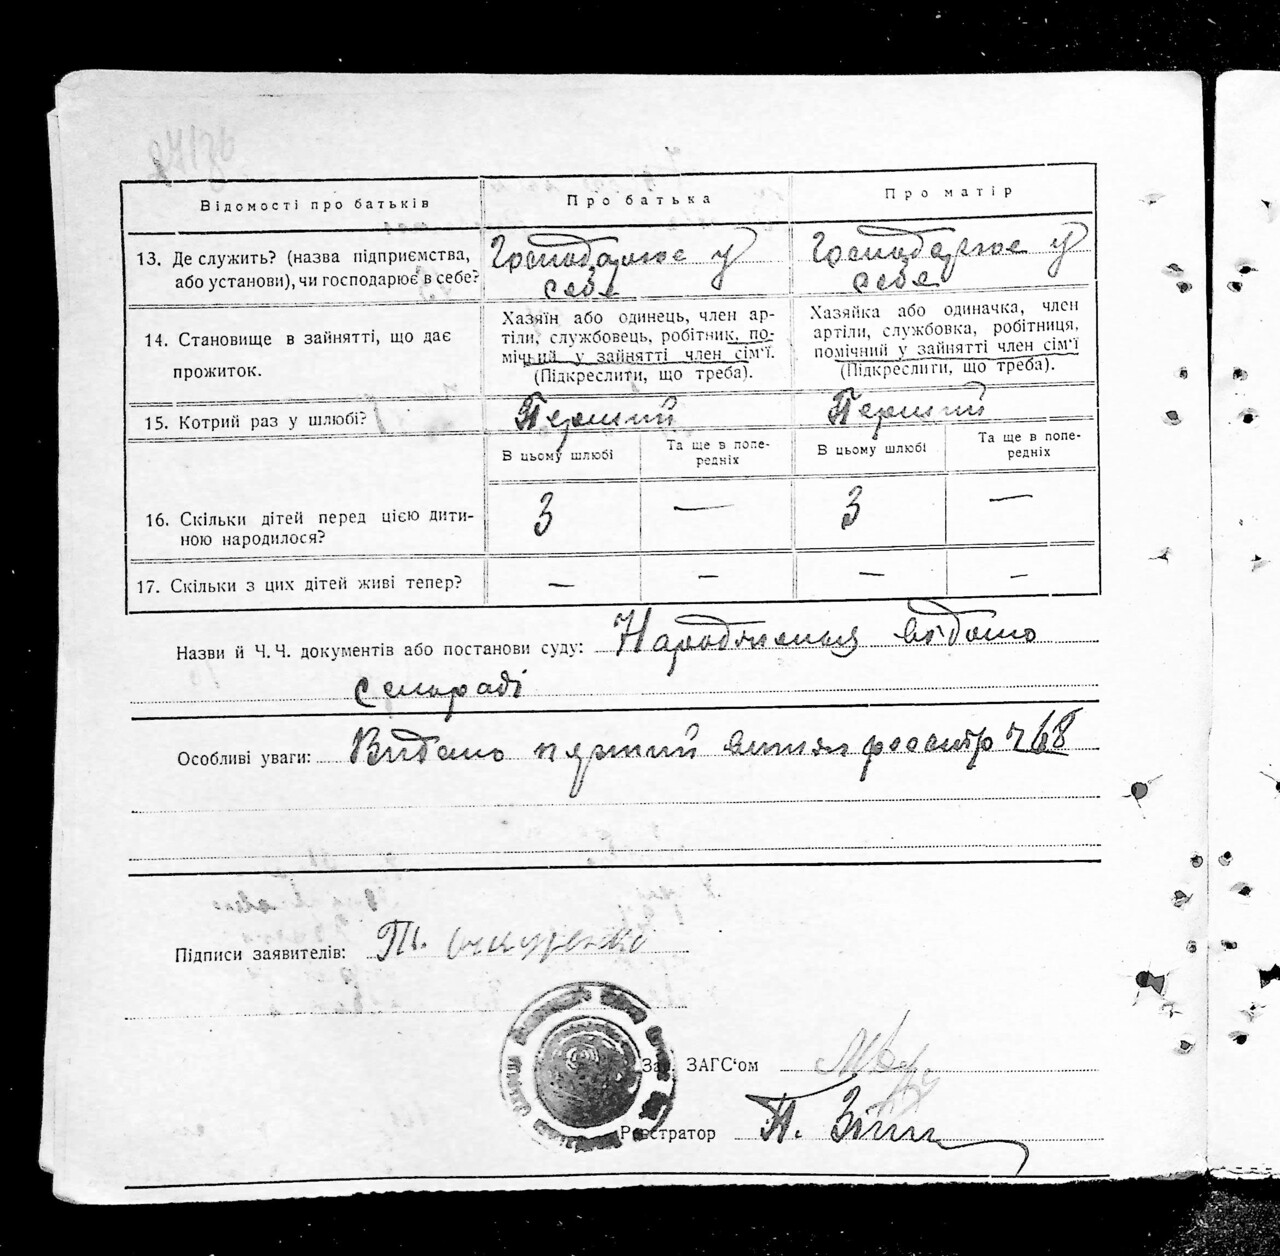 Відомості про батьків
Про батька
Про матір
13. Де служить? (назва підприємства,
або установи), чи господарює в себе?
Господарює у
себе
Господарює у
себе
14. Становище в зайнятті, що дає
прожиток.
Хазяїн або одинець, член ар-
тіли, службовець, робітник, по-
мічний у зайнятті член сім'ї.
(Підкреслити, що треба).
Хазяйка або одиначка, член
артіли, службовка, робітниця,
помічний у зайнятті член сім'ї
(Підкреслити, що треба).
15. Котрий раз у шлюбі?
Перший
Перший
В цьому шлюбі
Та ще в попе-
редніх
В цьому шлюбі
Та ще в попе-
редніх
16. Скільки дітей перед цією дити-
ною народилося?
3
—
3
—
17. Скільки з цих дітей живі тепер?
—
—
—
—
Назви й Ч.Ч. документів або постанови суду: Народження відомо
сельраді
Особливі уваги: Видано перший витяг реєстр 768
Підписи заявителів:
Зав. ЗАГС'ом
Реєстратор П.